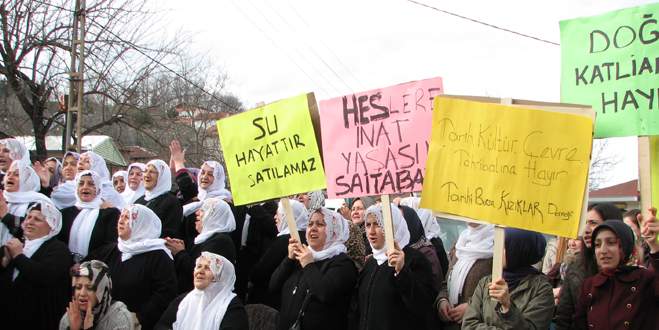 SU
HAYATTIR
SATILAMAZ
HESLERE
İNAT
YAŞASIN
SAİTABAT
Tarih, Kültür, Çevre
Tahribatına Hayır
Tarihi Bursa KIZIKLAR Derneği
DOĞ
KATLİA
HAYI